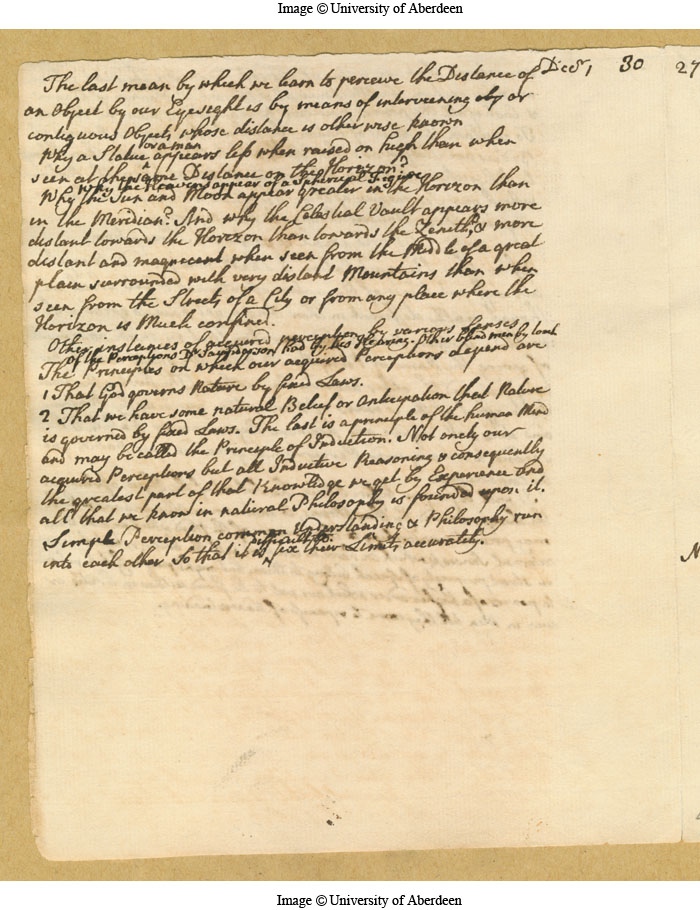 Image © University of Aberdeen
The last mean by which we learn to perceive the Distance of
Decr 1
30
27
an Object by our Eyesight is by means of interveening obj or
contiguous Objects whose distance is other wise known
or a man
Why a Statue appears less when raised on high than when
seen at the same Distance on the Horizon?
Why the Heavens appear of a Spherical Figure
Why the Sun and Moon appear greater in the Horizon than
in the Meridian? And why the Celestial Vault appears more
distant towards the Horizon than towards the Zenith, & more
distant and magnificent when seen from the Middle of a great
plain surrounded with very distant Mountains than when
seen from the Streets of a City or from any place where the
Horizon is Much confined.
Other instances of acquired perception by various senses
Of the Perceptions Dr Saunderson had by his Hearing. Other blind men by touch
The Principles on which our acquired Perceptions depend are
1 That God governs Nature by fixed Laws.
2 That we have some natural Belief or Anticipation that Nature
is governed by fixed Laws. The last is a principle of the human Mind
and may be called the Principle of Induction. Not onely our
acquired Perceptions but all Inductive Reasoning & consequently
the greatest part of that Knowledge we get by Experience and
all that we know in natural Philosophy is founded upon it.
Simple Perception common Understanding & Philosophy run
difficult to
into each other So that it is fix their Limits accurately.
N
Image © University of Aberdeen